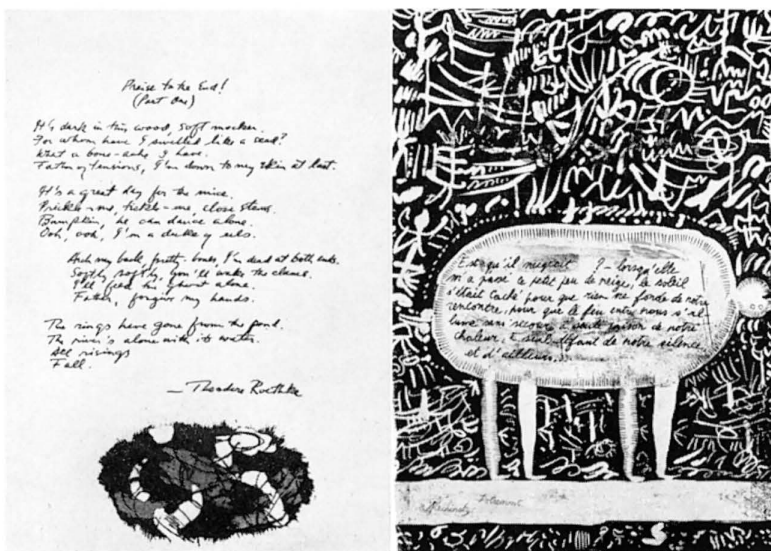 Praise to the End!
(Part One)
It's dark in this wood, soft mocker.
For whom have I swelled like a seed?
What a bone-ache I have.
Father of tensions, I'm down to my skin at last.
It's a great day for the mice.
Prickle-me, tickle-me, close stems.
Bumpkin, he can dance alone.
Ooh, ooh, I'm a duke of eels.
Arch my back, pretty-bones, I'm dead at both ends.
Softly, softly, you'll wake the clams.
I'll feed the ghost alone.
Father, forgive my hands.
The rings have gone from the pond.
The river's alone with its water.
All risings
Fall.
— Theodore Roethke
Est-ce qu'il neigeait ? – lorsqu'elle
m'a passé ce petit peu de neige, le soleil
s'était caché pour que rien ne fonde de notre
rencontre, pour que le feu entre nous s'al
lume sans secours à seule raison de notre
chaleur, seul défaut de notre silence
et d'ailleurs...